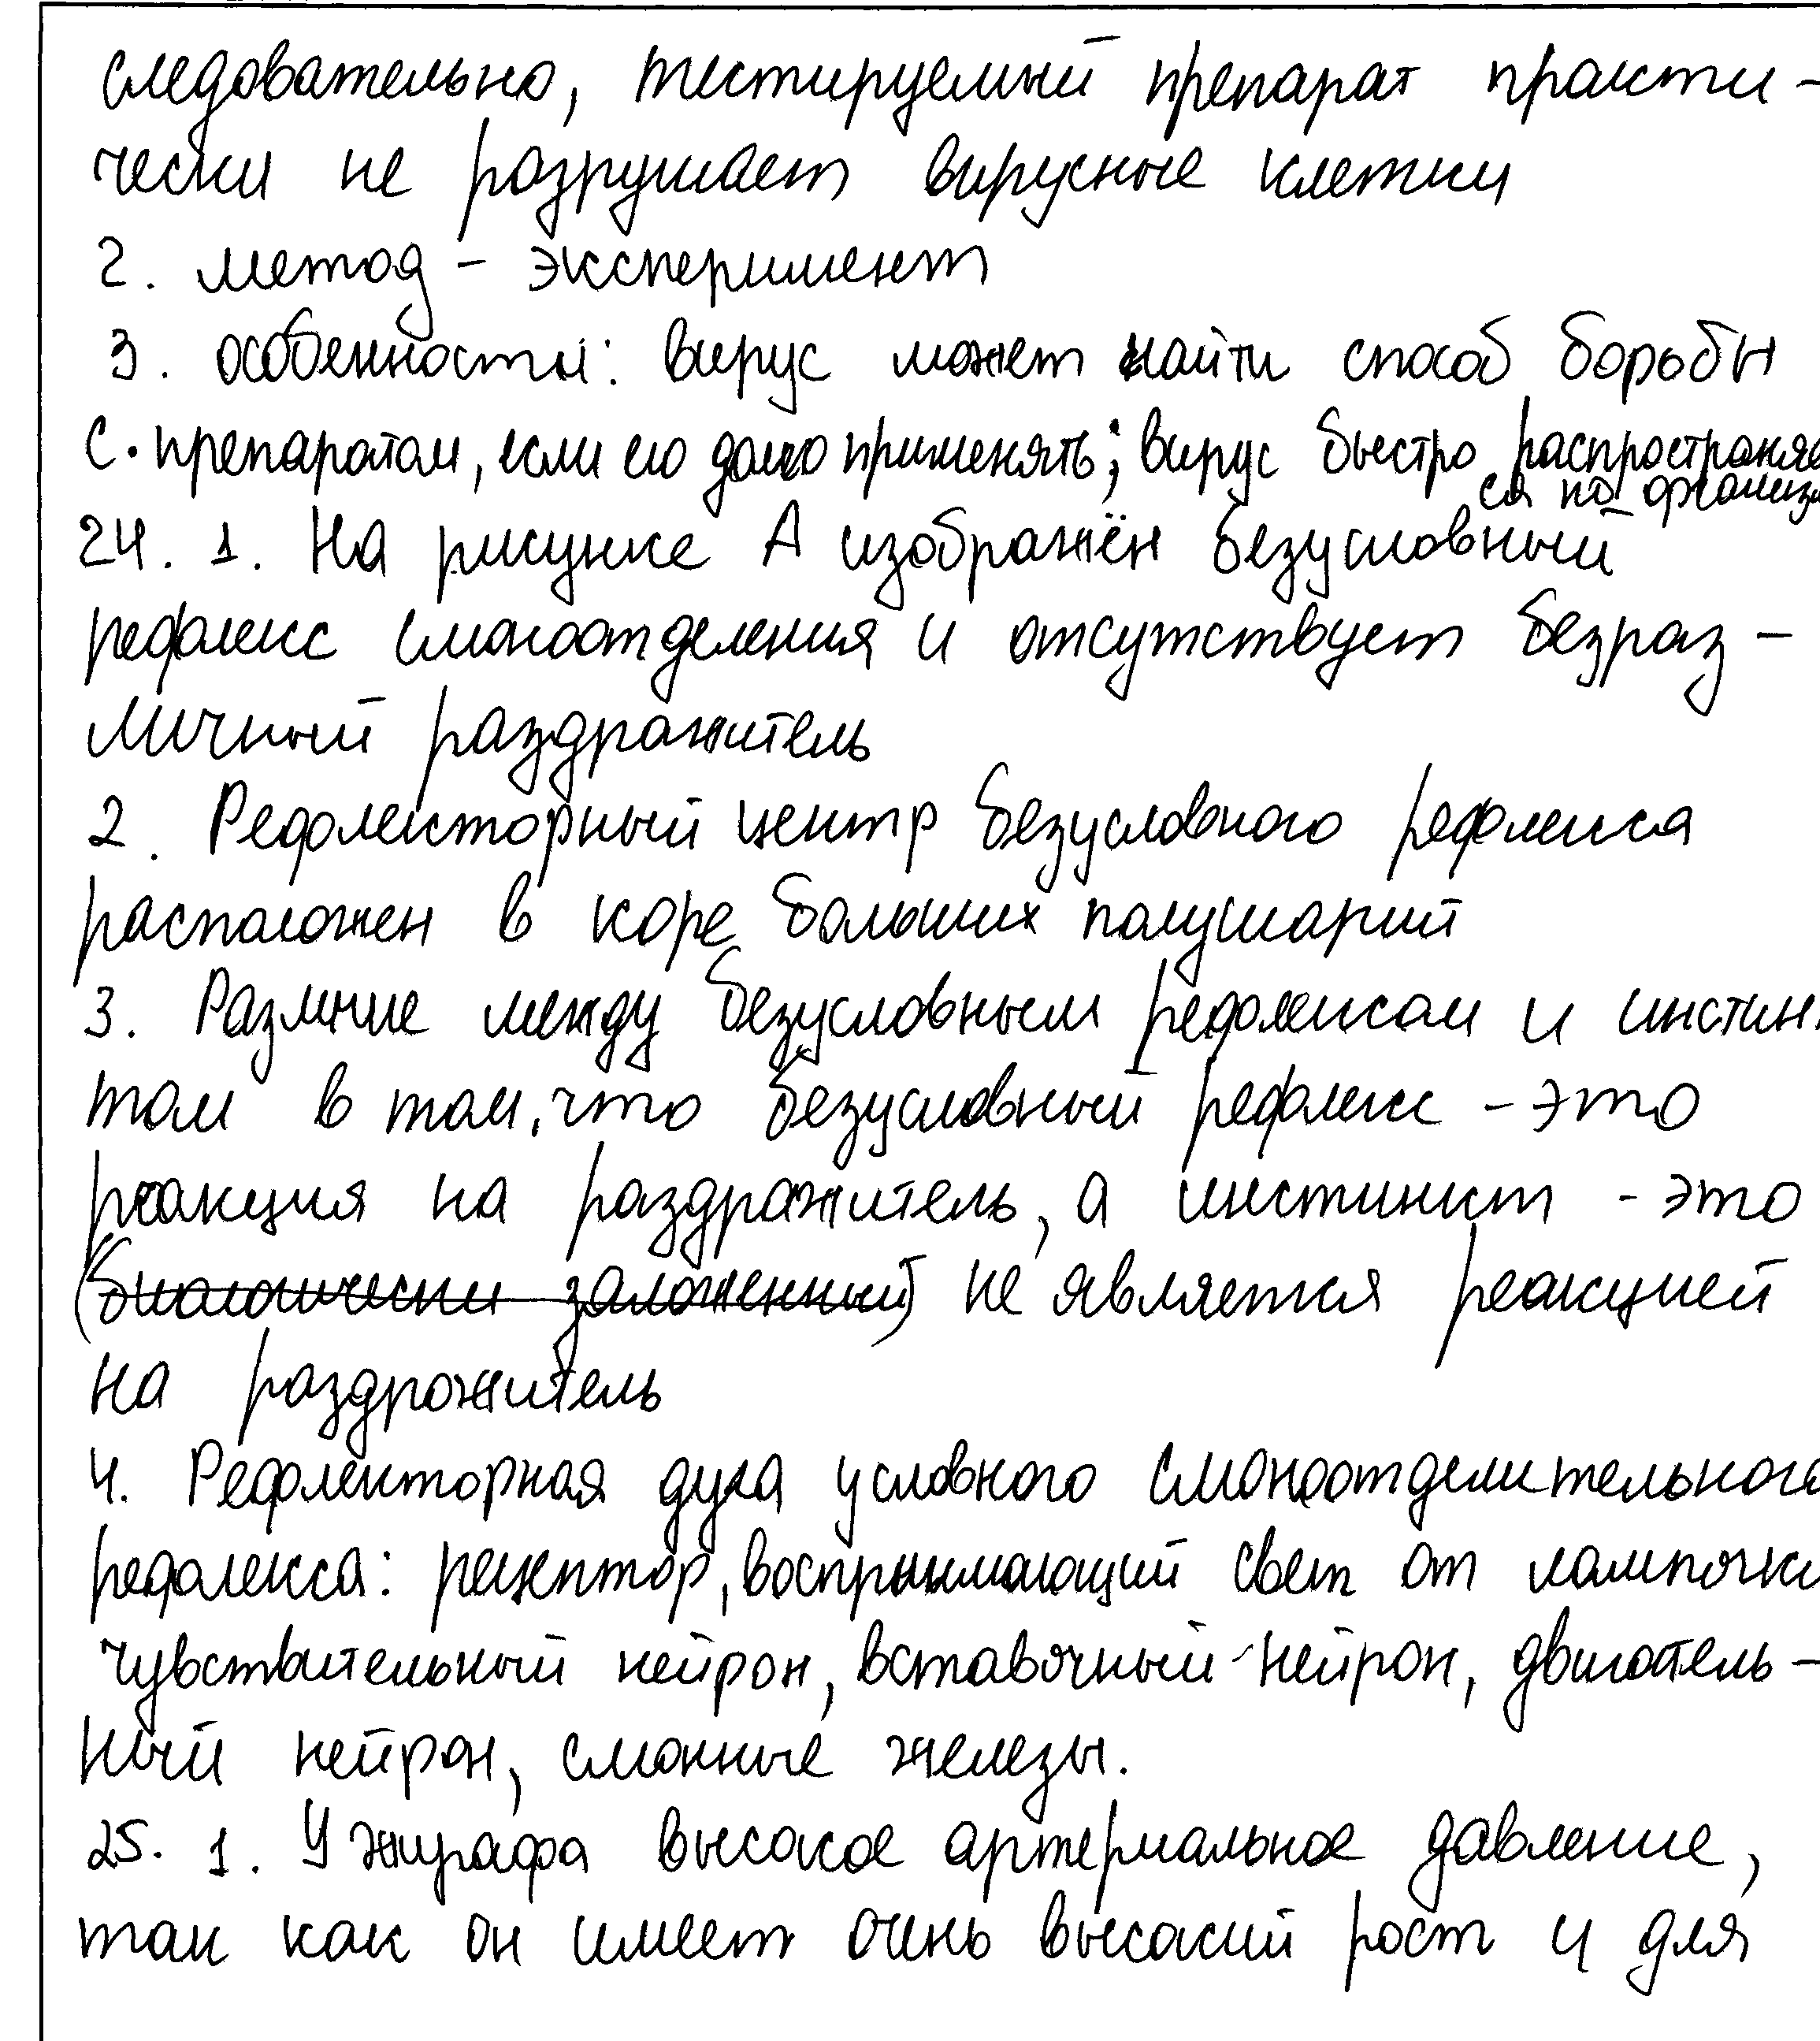 следовательно, тестируемый препарат практи-
чески не разрушает вирусные клетки
2. метод - эксперимент
3. особенности: вирус может найти способ борьбы
с препаратом, если его долго применять; вирус быстро распространяе
ся по организ
24. 1. На рисунке А изображён безусловный
рефлекс слюноотделения и отсутствует безраз-
личный раздражитель
2. Рефлекторный центр безусловного рефлекса
расположен в коре больших полушарий
3. Различие между безусловным рефлексом и инстин
том в том, что безусловный рефлекс - это
реакция на раздражитель, а инстинкт - это
(биологически заложенный) не является реакцией
на раздражитель
4. Рефлекторная дуга условного слюноотделительного
рефлекса: рецептор, воспринимающий свет от лампочки
чувствительный нейрон, вставочный нейрон, двигатель-
ный нейрон, слюнные железы.
25. 1. У жирафа высокое артериальное давление,
так как он имеет очень высокий рост и для